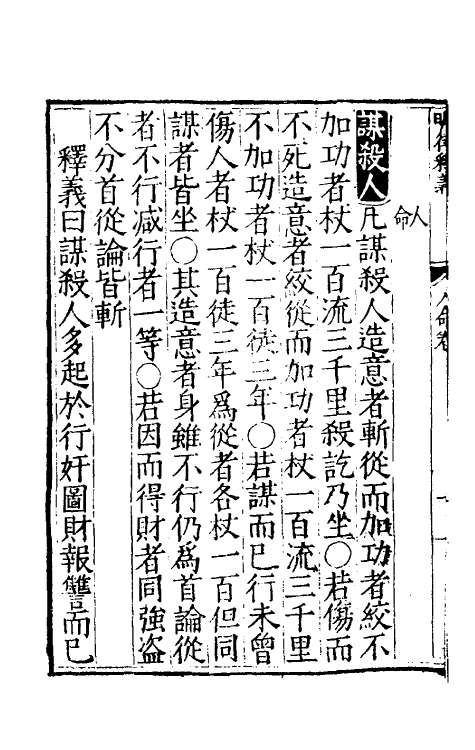 人命
謀殺人凡謀殺人造意者斬從而加功者絞不
加功者杖一百流三千里殺訖乃坐〇若傷而
不死造意者絞從而加功者杖一百流三千里
不加功者杖一百徒三年〇若謀而已行未曾
傷人者杖一百徒三年爲從者各杖一百但同
謀者皆坐〇其造意者身雖不行仍爲首論從
者不行减行者一等〇若因而得財者同強盗
不分首從論皆斬
釋義曰謀殺人多起於行奸圖財報讐而已